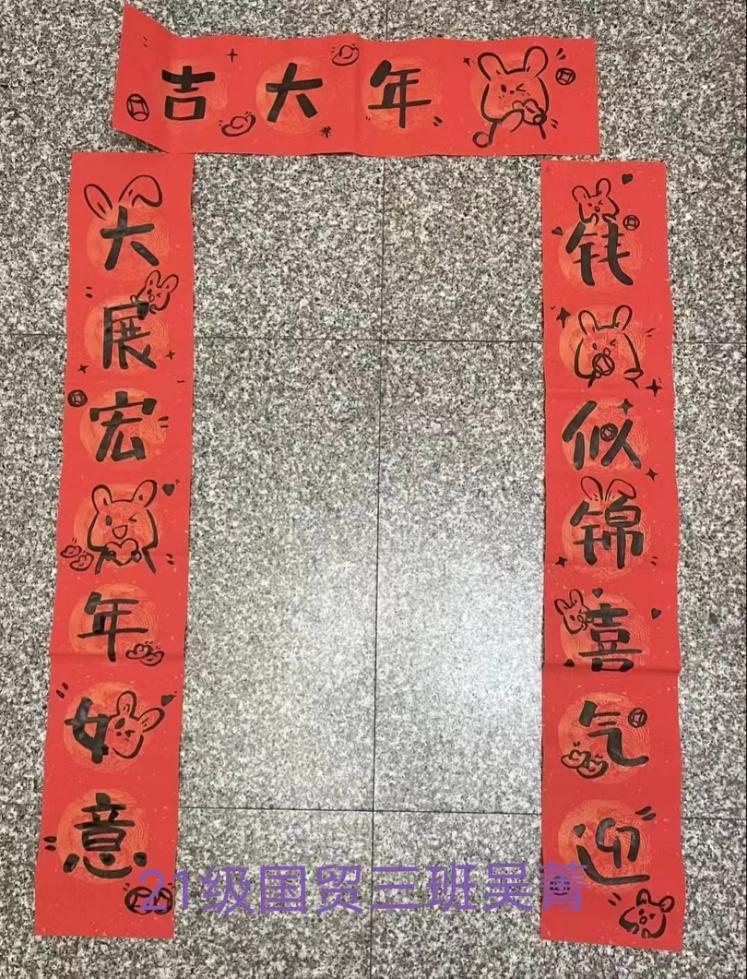 年大吉
钱似锦喜气迎
大展宏年如意
21级国贸三班吴菁